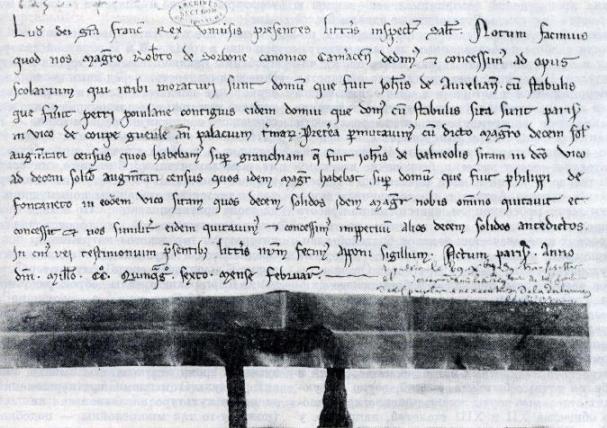 ARCHIVES
SECTION
Lud' dei gr̄a Franc' Rex Univ'sis presentes litt'as inspect' Salt'. Notum facimus
quod nos magr̄o Rob'to de Sorbona canonico Cam'acen̄ dedim' & concessim' ad opus
scolarium qui inibi moraturi sunt domū que fuit Joh'is de Aurelian' cū stabulis
que fūnt petri poulane contiguis eidem domui que dom' cū stabulis sita sunt paris'
in vico de coupe gueule an̄ palacium t'mar'. Pret'ea p'mutavim' cū dicto magr̄o decem sol'
augm̄tati census quos habebam' sup' granchiam q̄ fuit Joh'is de balneolis sitam in dc̄o vico
ad decem solid' augm̄tati census quos idem mag'r habebat sup' domū que fuit philippi de
fontaneto in eodem vico sitam quos decem solidos idem mag'r nobis om̄ino quitavit et
concessit & nos similit' eidem quitavim' & concessim' imp'petuū alios decem solidos antedictos.
In cui' rei testimonium p'sentib' litt'is nr̄m fecim' apponi sigillum. Actum paris'. Anno
dn̄i. Mill'o. CC°. Quinq'g°. sexto. mense Februar'.